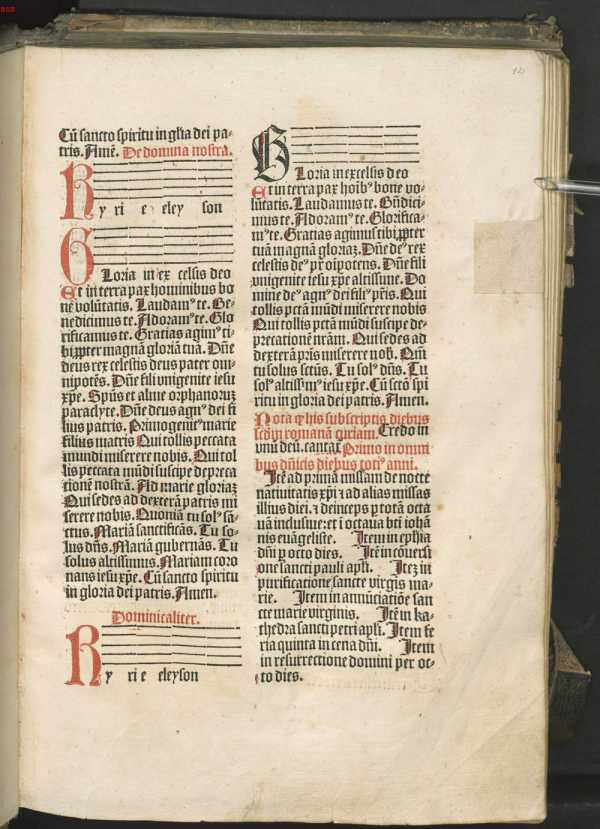 Cū sancto spiritu in gl̄ia dei pa-
tris. Amē. De domina nostra.
K
y ri e eley son
G
Loria in ex celsis deo
Et in terra pax hominibus bo
nē volūtatis. Laudamꝰ te. Be-
nedicimus te. Adoramꝰ te. Glo
rificamus te. Gratias agimꝰ ti-
bi ꝓpter magnā gloriā tuā. Dn̄e
deus rex celestis deus pater om-
nipotēs. Dn̄e fili vnigenite iesu
xp̄e. Sp̄us et alme orphanoruꝫ
paraclyte. Dn̄e deus agnꝰ dei fi
lius patris. Primogenitꝰ marie
filius matris Qui tollis peccata
mundi miserere nobis. Qui tol
lis peccata mūdi suscipe depreca
tionē nostrā. Ad marie gloriaꝫ
Qui sedes ad dexterā patris mi
serere nobis. Quoniā tu solꝰ sā-
ctus. Mariā sanctificās. Tu so-
lus dn̄s. Mariā gubernās. Tu
solus altissimus. Mariam coro
nans iesu xp̄e. Cū sancto spiritu
in gloria dei patris. Amen.
Dominicaliter.
K
y ri e eleyson
G
Loria in excelsis deo
Et in terra pax hoīb̄ꝰ bone vo-
lūtatis. Laudamus te. Bn̄dici-
mus te. Adoramꝰ te. Glorifica-
mꝰ te. Gratias agimus tibi ꝓpter
tuā magnā gloriaꝫ. Dn̄e deꝰ rex
celestis deꝰ pr̄ oīpotens. Dn̄e fili
vnigenite iesu xp̄e altissime. Do
mine deꝰ agnꝰ dei filiꝰ pr̄is. Qui
tollis pctā mūdi miserere nobis
Qui tollis pctā mūdi suscipe de-
precationē nr̄am. Qui sedes ad
dexterā pr̄is miserere nob̄. Qm̄
tu solus sctūs. Tu solꝰ dn̄s. Tu
solꝰ altissimꝰ iesu xp̄e. Cū sctō spi
ritu in gloria dei patris. Amen.
Nota ꝙ his subscriptis diebus
scd̄m romanā curiam. Credo in
vnū deū. cantat̄ Primo in omni
bus dn̄icis diebus totiꝰ anni.
Itē ad primā missam de nocte
natiuitatis xp̄i ⁊ ad alias missas
illius diei. ⁊ deinceps ꝑ totā octa
uā inclusiue: et ī octaua bt̄i iohā
nis euāgeliste. Item in ep̄hia
dn̄i ꝑ octo dies. Itē in cōuersi
one sancti pauli apl̄i. Iteꝫ in
purificatione sancte virgīs ma-
rie. Item in annūciatiōe san
cte marie virginis. Itē in ka-
thedra sancti petri apl̄i. Item fe
ria quinta in cena dn̄i. Item
in resurrectione domini per oc-
to dies.